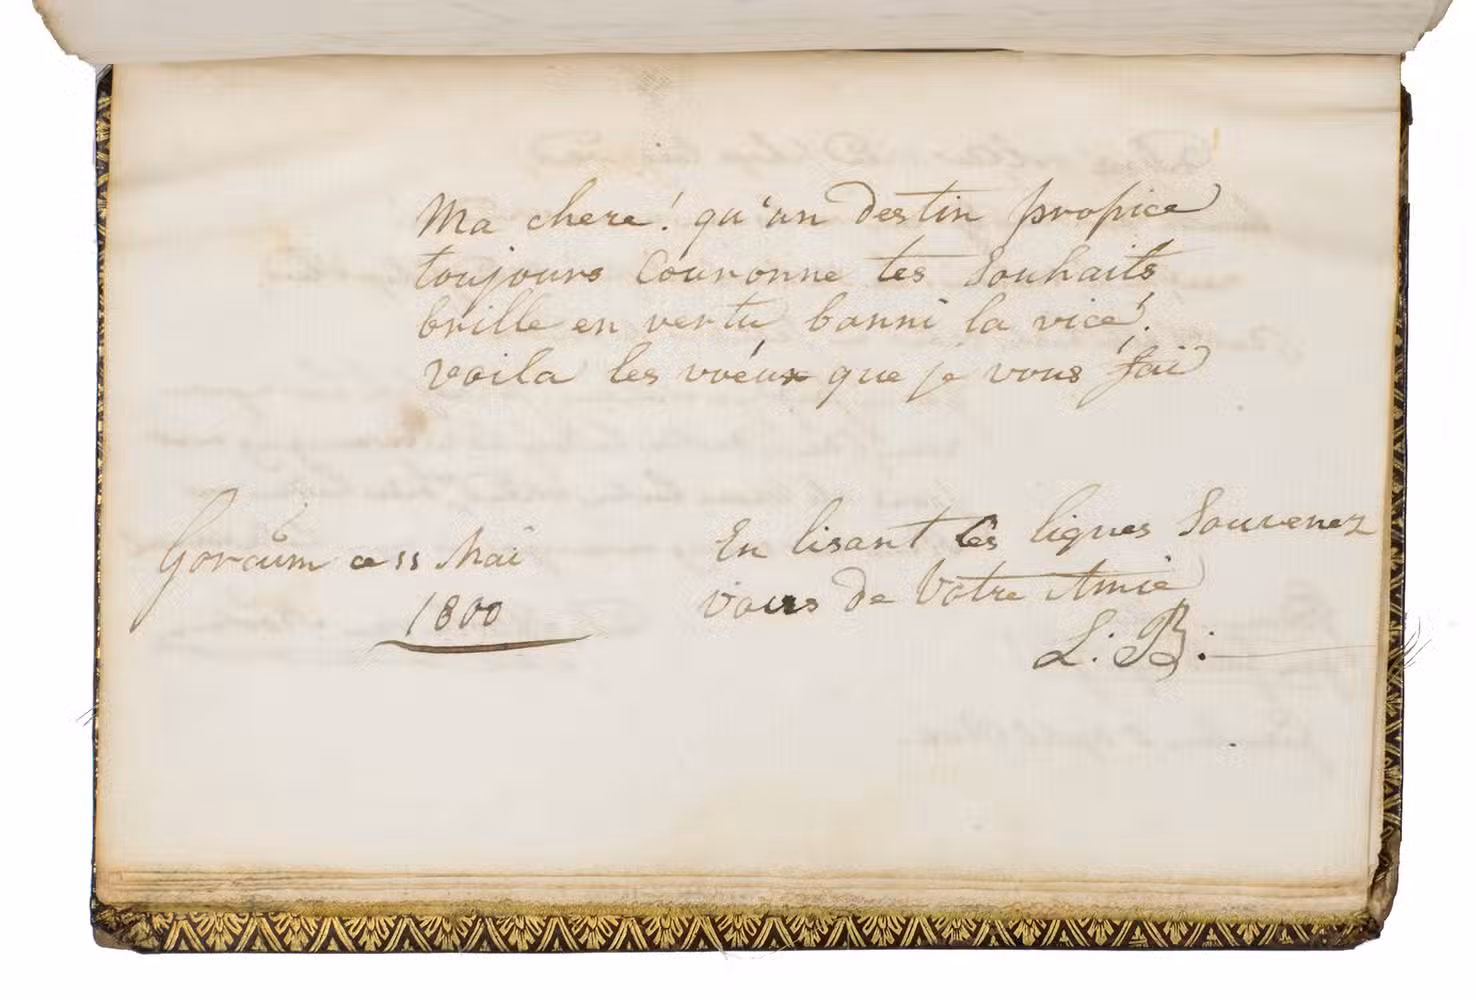 Ma chere! qu'un destin propice
toujours Couronne tes Souhaits
brille en vertu banni la vice!
voila les voeux que je vous fai
Gorcum ce 11 Mai
1800
En lisant ces lignes Souvenez
vous de Votre Amie
L. B.